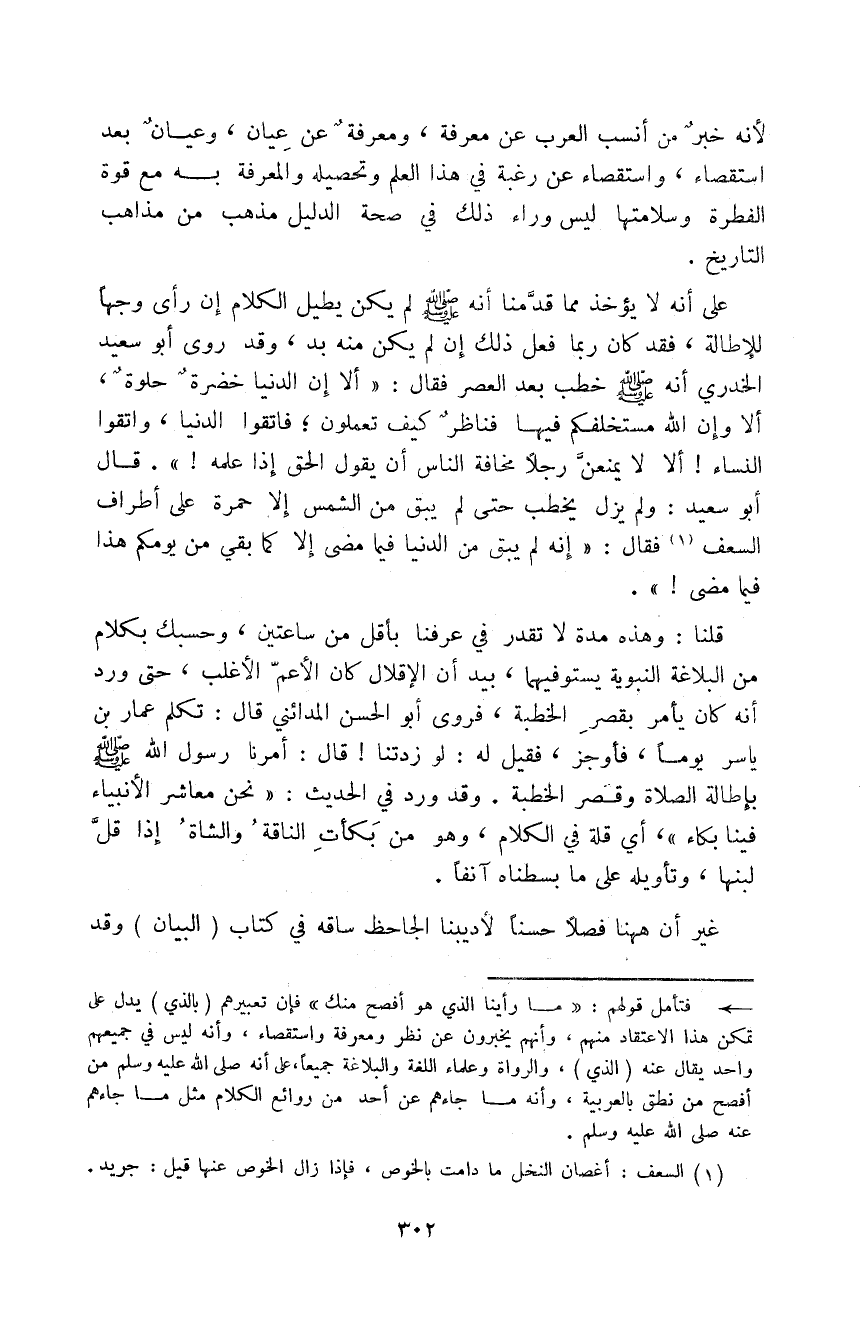 لأنه خبرٌ من أنسب العرب عن معرفة ، ومعرفةٌ عن عِيان ، وعيــانٌ بعد
استقصاء ، واستقصاء عن رغبة في هذا العلم وتحصيله والمعرفة بـــه مع قوة
الفطرة وسلامتها ليس وراء ذلك في صحة الدليل مذهب من مذاهب
التاريخ .
على أنه لا يؤخذ مما قدَّمنا أنه ﷺ لم يكن يطيل الكلام إن رأى وجهاً
للإطالة ، فقد كان ربما فعل ذلك إن لم يكن منه بد ، وقد روى أبو سعيد
الخدري أنه ﷺ خطب بعد العصر فقال : « ألا إن الدنيا خضرةٌ حلوةٌ ،
ألا وإن الله مستخلفكم فيهــا فناظرٌ كيف تعملون ؛ فاتقوا الدنيا ، واتقوا
النساء ! ألا لا يمنعنَّ رجلاً مخافة الناس أن يقول الحق إذا علمه ! » . قــال
أبو سعيد : ولم يزل يخطب حتى لم يبق من الشمس إلا حمرة على أطراف
السعف (١) فقال : « إنه لم يبق من الدنيا فيما مضى إلا كما بقي من يومكم هذا
فيما مضى ! » .
قلنا : وهذه مدة لا تقدر في عرفنا بأقل من ساعتين ، وحسبك بكلام
من البلاغة النبوية يستوفيهما ، بيد أن الإقلال كان الأعمّ الأغلب ، حتى ورد
أنه كان يأمر بقصرِ الخطبة ، فروى أبو الحسن المدائني قال : تكلم عمار بن
ياسر يومــاً ، فأوجز ، فقيل له : لو زدتنا ! قال : أمرنا رسول الله ﷺ
بإطالة الصلاة وقـصر الخطبة . وقد ورد في الحديث : « نحن معاشر الأنبياء
فينا بكاء »، أي قلة في الكلام ، وهو من بَكأتِ الناقةُ والشاةُ إذا قلَّ
لبنها ، وتأويله على ما بسطناه آنفاً .
غير أن ههنا فصلاً حسناً لأديبنا الجاحظ ساقه في كتاب ( البيان ) وقد
← فتأمل قولهم : « مــا رأينا الذي هو أفصح منك » فإن تعبيرهم ( بالذي ) يدل على
تمكن هذا الاعتقاد منهم ، وأنهم يخبرون عن نظر ومعرفة واستقصاء ، وأنه ليس في جميعهم
واحد يقال عنه ( الذي ) ، والرواة وعلماء اللغة والبلاغة جميعاً،على أنه صلى الله عليه وسلم من
أفصح من نطق بالعربية ، وأنه مــا جاءهم عن أحد من روائع الكلام مثل مــا جاءهم
عنه صلى الله عليه وسلم .
(١) السعف : أغصان النخل ما دامت بالخوص ، فإذا زال الخوص عنها قيل : جريد .
٣٠٢